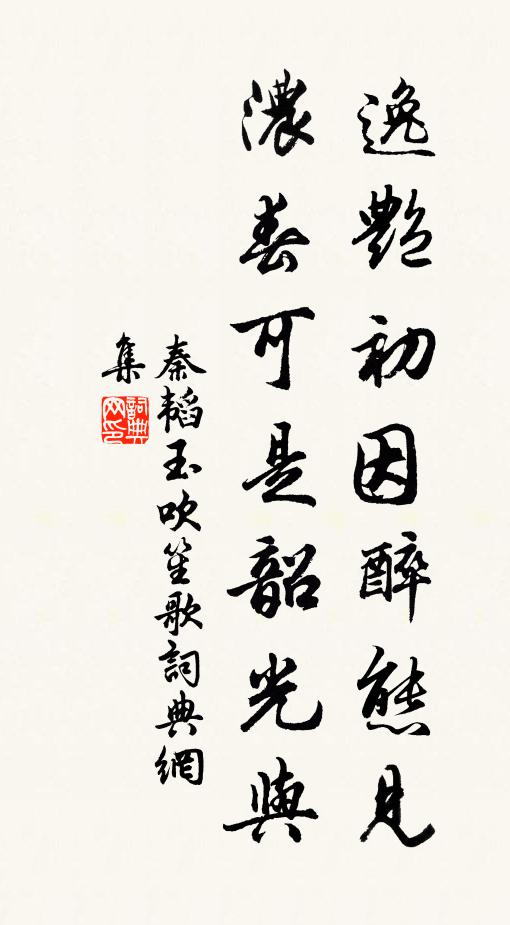 逸艷初因醉態見
濃春可是韶光與
秦韬玉吹笙歌詞典網
集
詞典
网印